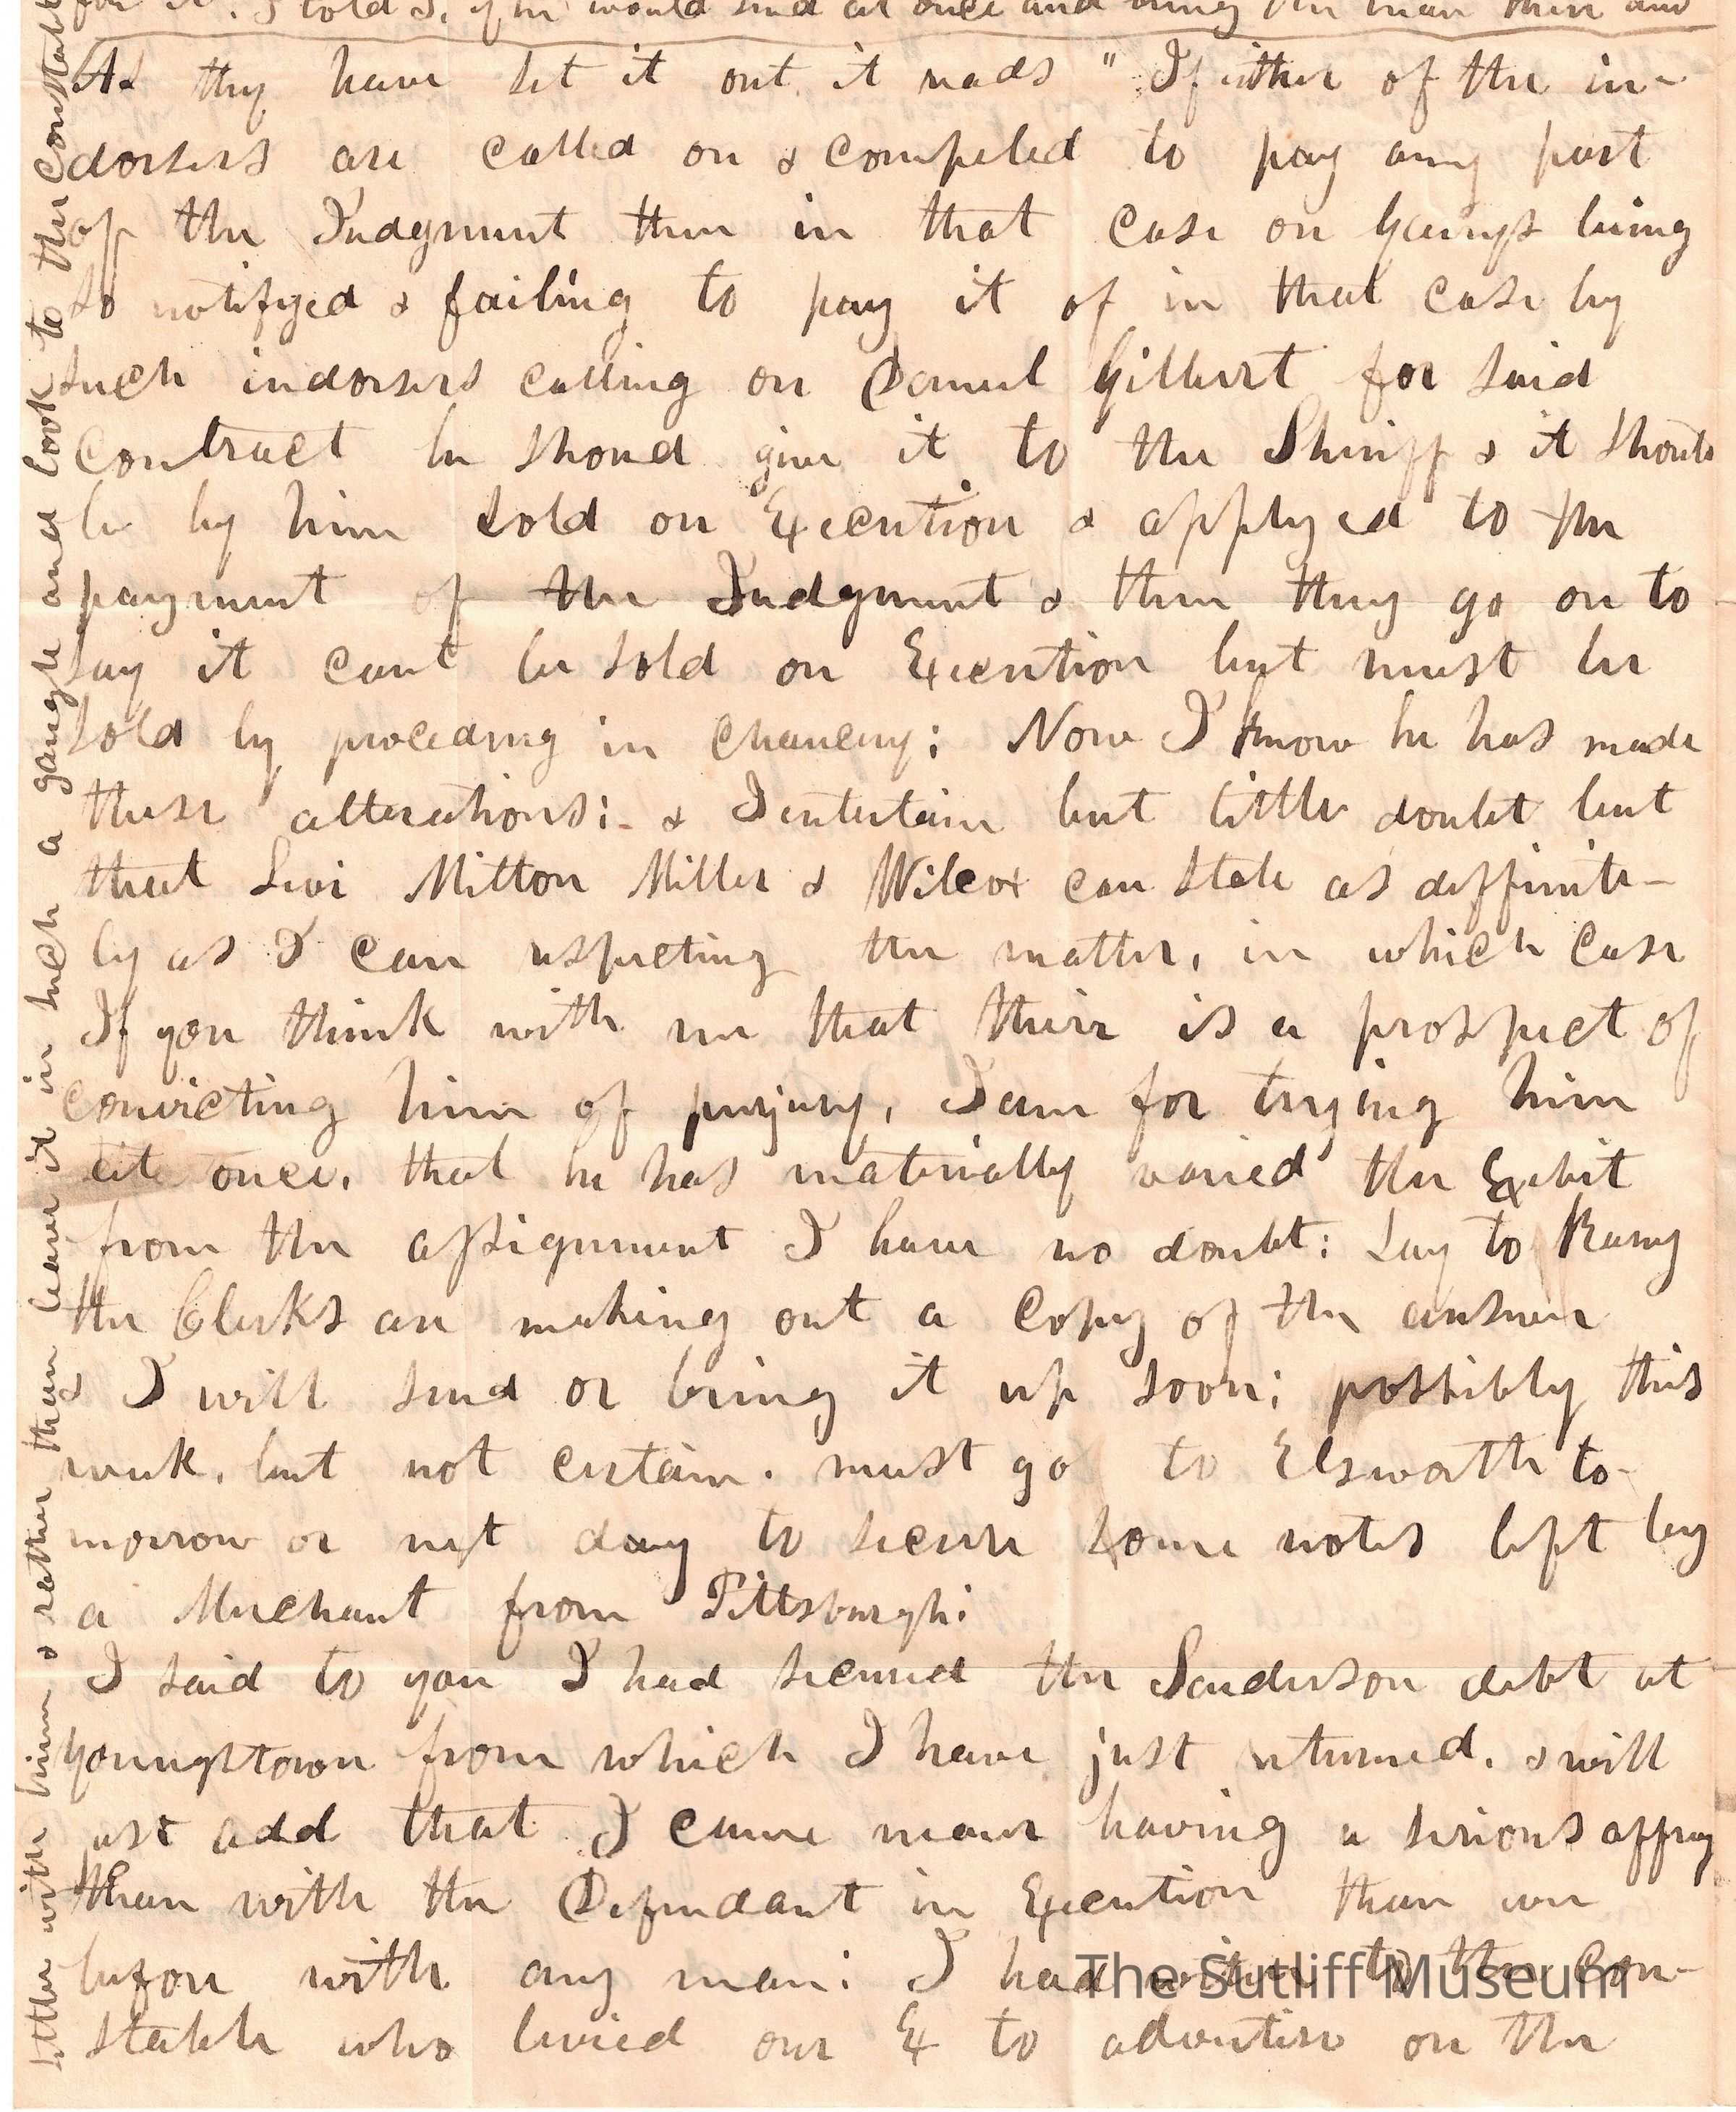 for it. I told S. if he would send at once and bring the man then and
As they have set it out it reads " If either of the in-
dorsers are called on & compeled to pay any part
of the Judgment then in that case on being
so notifyed & failing to pay it of in that case by
such indorsers calling on Samuel Gilbert for said
Contract he shoud give it to the Sheriff & it should
be by him sold on Execution & applyed to the
payment of the Judgment & then they go on to
say it cant be sold on Execution but must be
sold by proceding in Chancery; Now I know he has made
these alterations: & I entertain but little doubt but
that Levi Milton Miller & Wilcox can state as deffinite-
ly as I can respecting the matter, in which case
If you think with me that their is a prospect of
convicting him of perjury, I am for trying him
at once, that he has materially varied the Exibit
from the assignment I have no doubt: Say to Raney
the Clerks are making out a Copy of the answer
& I will send or bring it up soon; possibly this
week, but not certain. must go to Elsworth to-
morrow or next day to secure some notes left by
a Merchant from Pittsburgh:
I said to you I had secured the Sanderson debt at
Youngstown from which I have just returned. & will
just add that I came near having a serious affray
than with the Defendant in Execution than ever
before with any man: I had writen to the Con-
stable who levied our Ex to advertise on the
letter with him & rather than leave it in such a gangle and look to the Constable
The Sutliff Museum